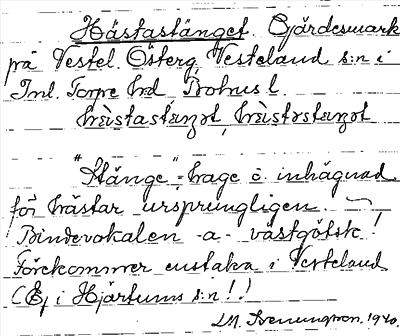 Hästastänget. Gärdesmark
på Vestel. Österg. Vesteland s:n i
Inl. Torpe hd Bohus l.
"Stänge" = hage o inhägnad
för hästar ursprungligen.
Bindevokalen -a- västgötsk!
Förekommer enstaka i Vesteland
(Ej i Hjärtums s:n!)
J.M. Svenungson. 1940.